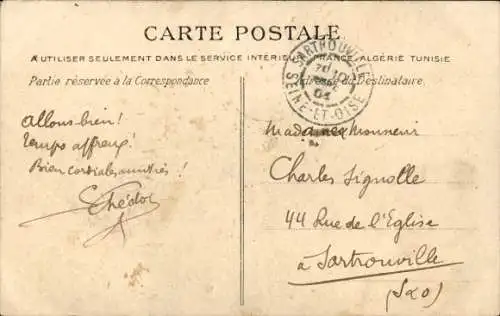 CARTE POSTALE
A UTILISER SEULEMENT DANS LE SERVICE INTÉRIEUR FRANCE, ALGÉRIE TUNISIE
Partie réservée à la Correspondance
Adresse du Destinataire
SARTROUVILLE
SEINE-ET-OISE
Allons bien!
temps affreux!
Bien cordiales amitiés!
Madame Monsieur
Charles Signolle
44 Rue de l'Eglise
à Sartrouville
(S&O)